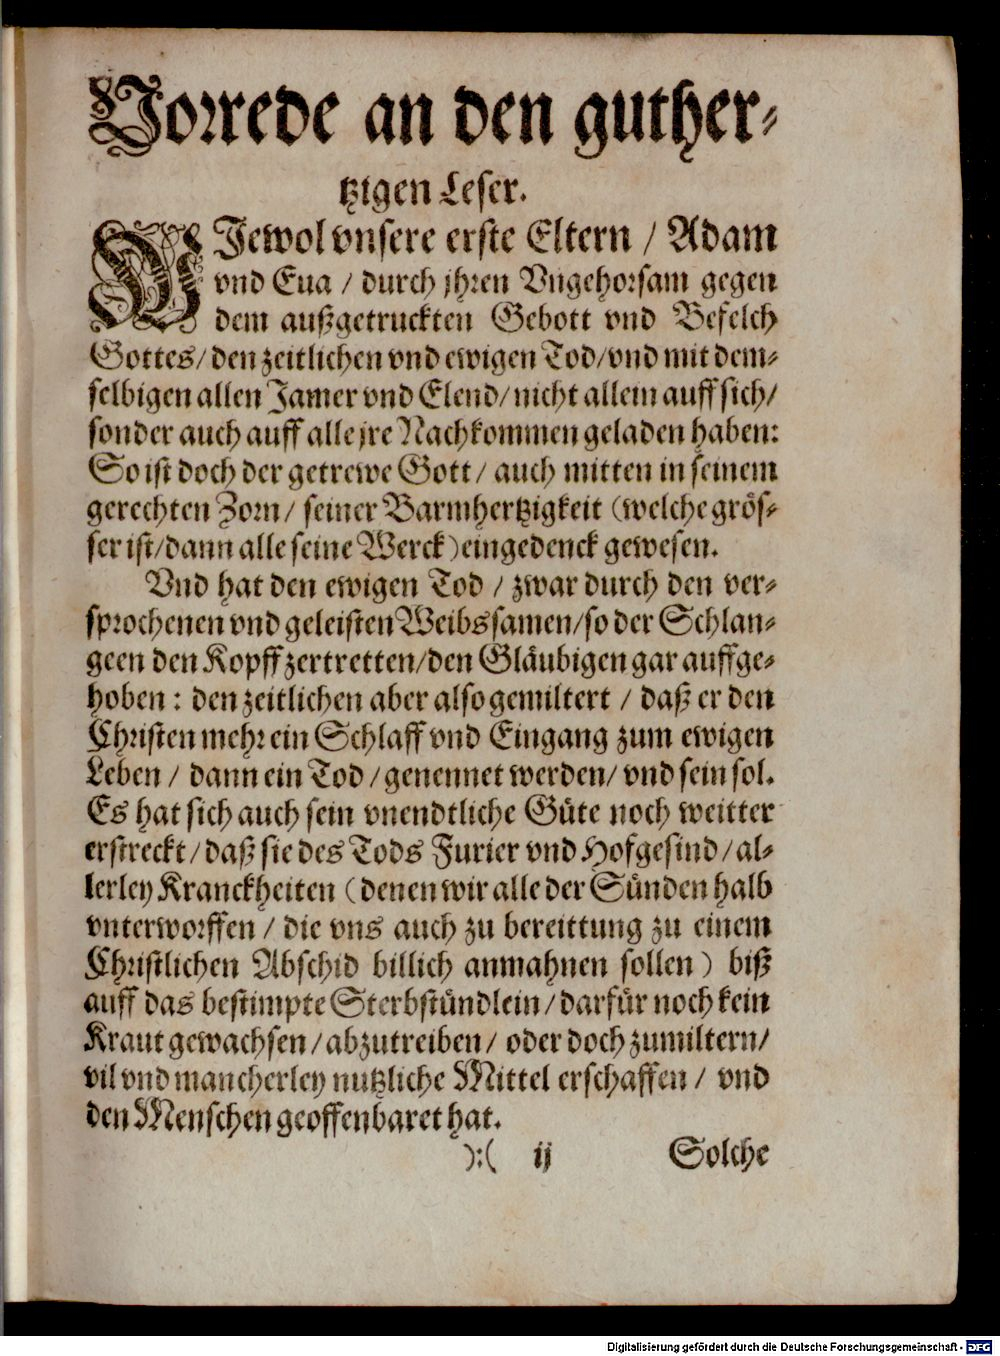 Vorrede an den guther-
tzigen Leser.
WIewol vnsere erste Eltern / Adam
vnd Eua / durch jhren Vngehorsam gegen
dem außgetruckten Gebott vnd Befelch
Gottes/ den zeitlichen vnd ewigen Tod/vnd mit dem-
selbigen allen Jamer vnd Elend/ nicht allein auff sich/
sonder auch auff alle jre Nachkommen geladen haben:
So ist doch der getrewe Gott / auch mitten in seinem
gerechten Zorn/ seiner Barmhertzigkeit (welche grös-
ser ist/dann alle seine Werck) eingedenck gewesen.
Vnd hat den ewigen Tod / zwar durch den ver-
sprochenen vnd geleisten Weibssamen/so der Schlan-
geen den Kopff zertretten/den Gläubigen gar auffge-
hoben : den zeitlichen aber also gemiltert / daß er den
Christen mehr ein Schlaff vnd Eingang zum ewigen
Leben / dann ein Tod / genennet werden/ vnd sein sol.
Es hat sich auch sein vnendtliche Güte noch weitter
erstreckt / daß sie des Tods Furier vnd Hofgesind / al-
lerley Kranckheiten (denen wir alle der Sünden halb
vnterworffen / die vns auch zu bereittung zu einem
Christlichen Abschid billich anmahnen sollen) biß
auff das bestimpte Sterbstündlein / darfür noch kein
Kraut gewachsen / abzutreiben / oder doch zumiltern/
vil vnd mancherley nutzliche Mittel erschaffen / vnd
den Menschen geoffenbaret hat.
):( ij Solche
Digitalisierung gefördert durch die Deutsche Forschungsgemeinschaft - DFG